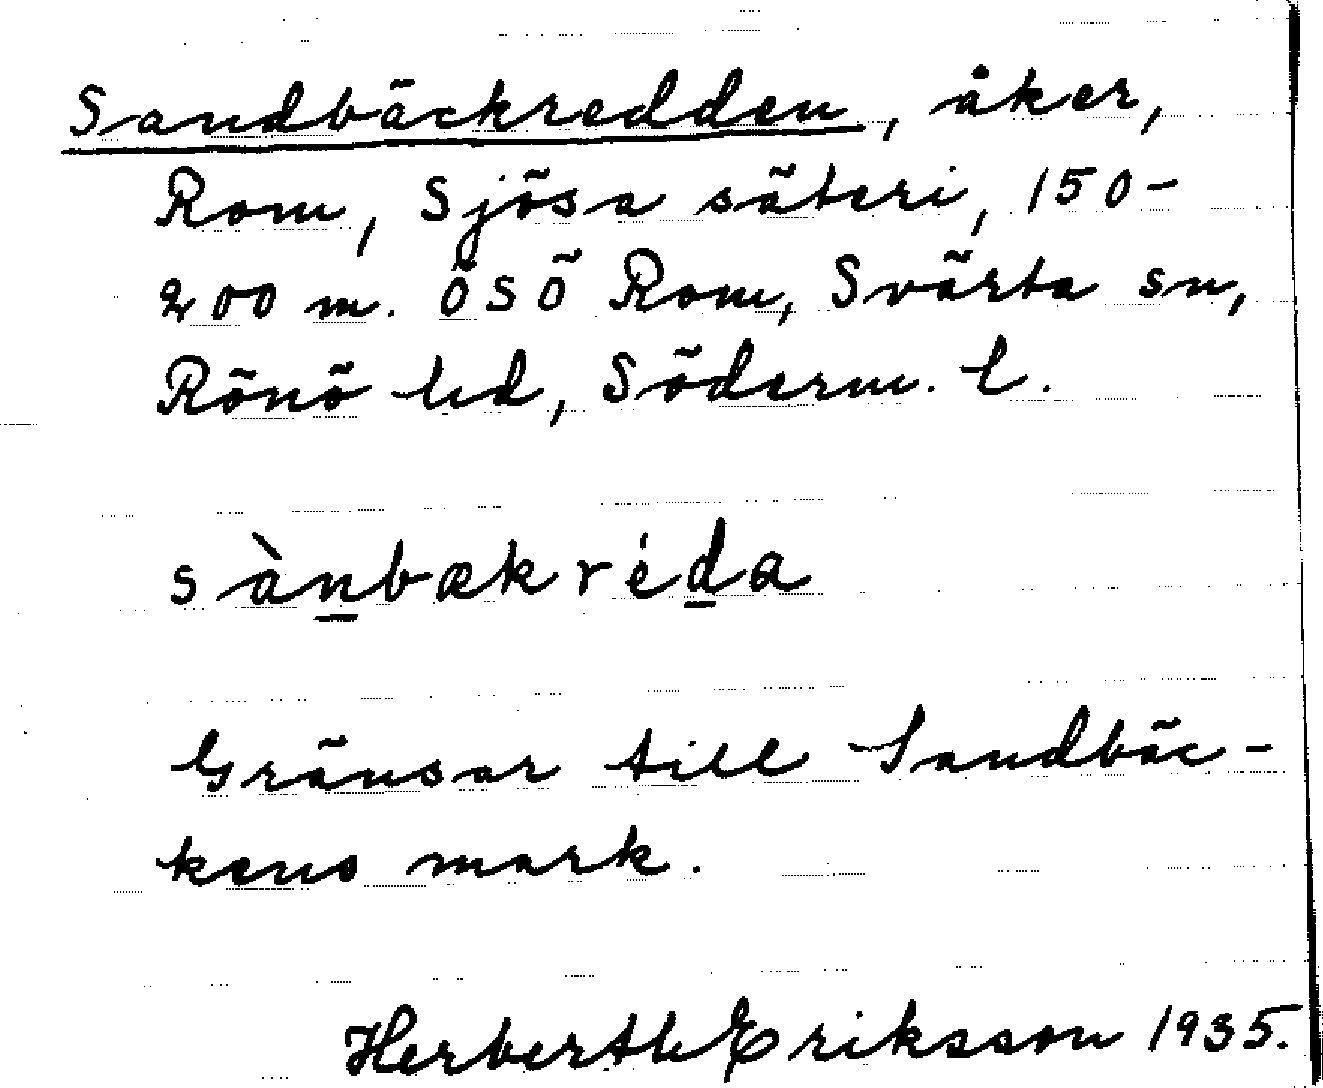 Sandbäckredden, åker,
Rom, Sjösa säteri, 150-
200 m. ÖSÖ Rom, Svärta sn,
Rönö hd, Söderm. l.
sànbækréda
Gränsar till Sandbäc-
kens mark.
Herberth Eriksson 1935.